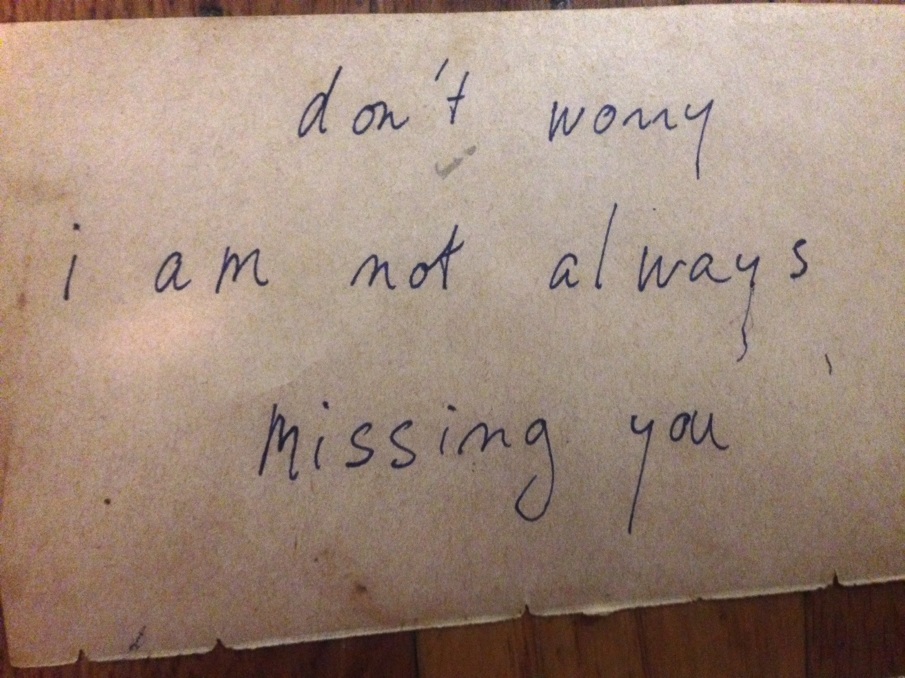 don't worry
i am not always
missing you